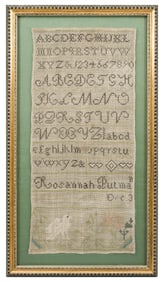 ABCDEFGHIJKL
MNOPQRSTUVW
XYZ&1234567890
ABCDEFGH
IJKLMNO
PQRSTUV
WXYZ abcd
efghijklmnopqrstu
vwxyz&
Rosannah Putma
Dec 3